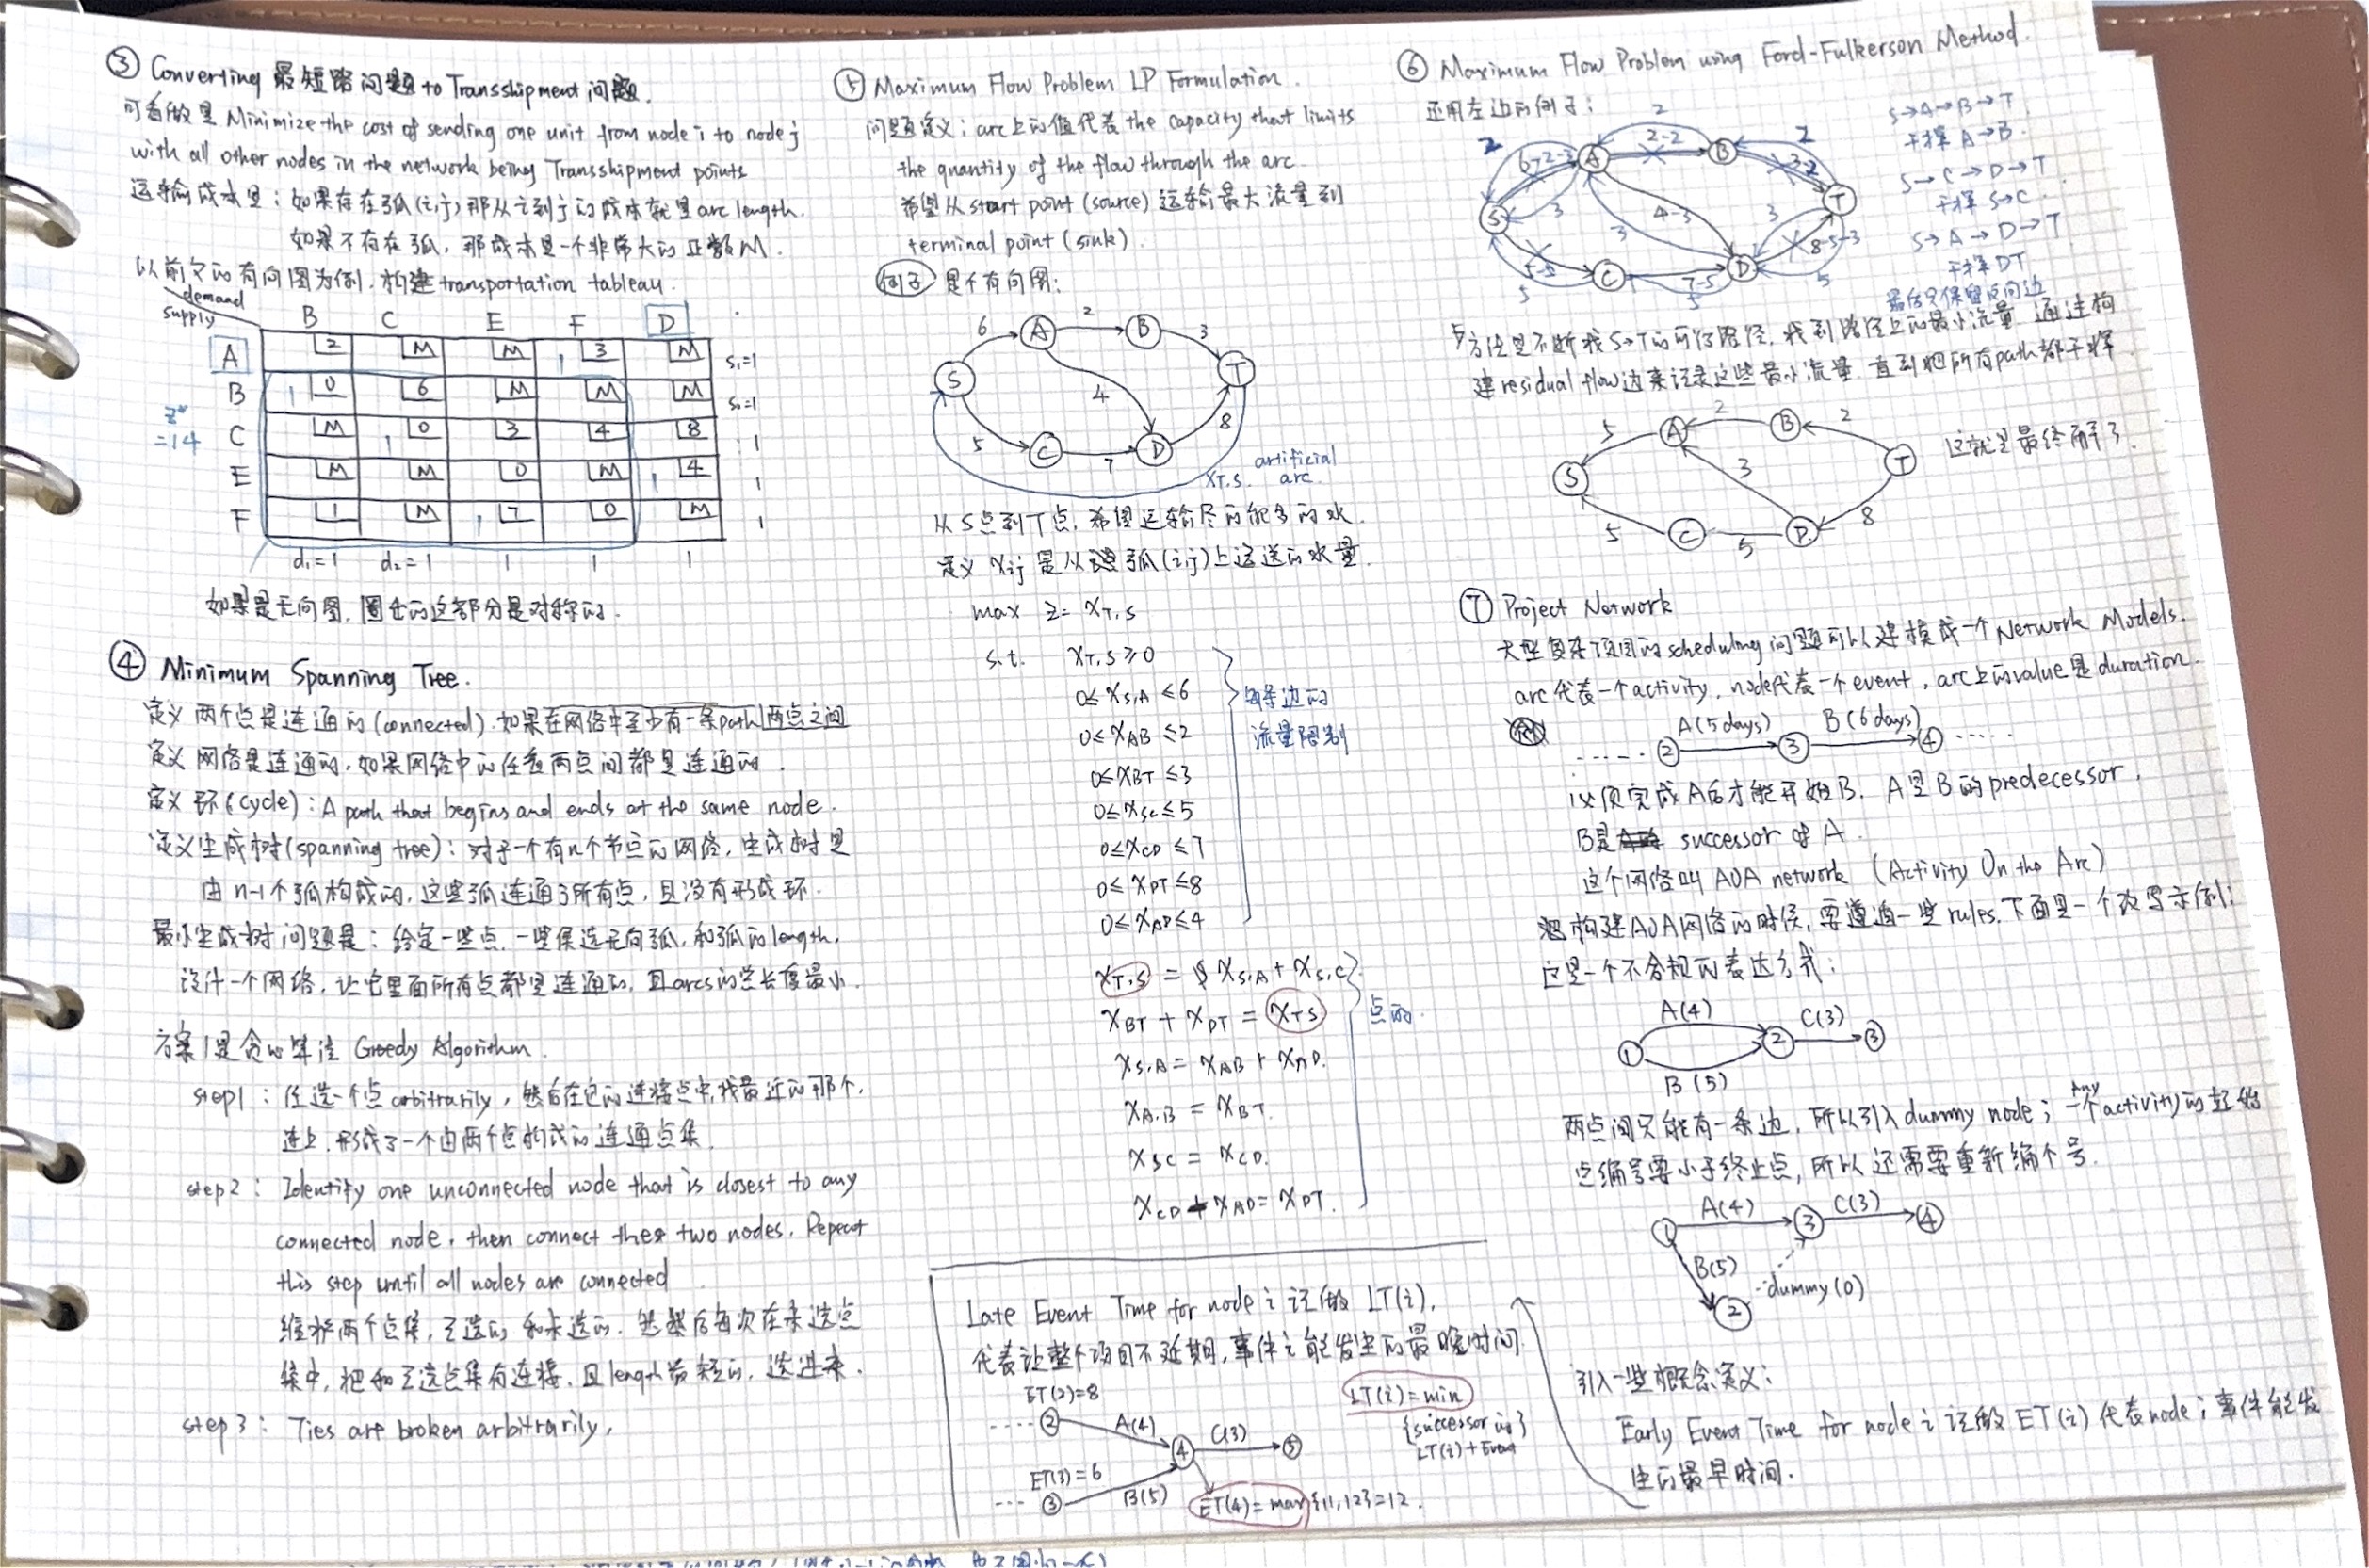 ③ Converting 最短路问题 to Transshipment 问题.
可看做是 Minimize the cost of sending one unit from node i to node j
with all other nodes in the network being Transshipment points
运输成本是：如果存在弧(i,j) 那从i到j的成本就是 arc length.
如果不存在弧, 那成本是一个非常大的正数M.
以前文的有向图为例, 构建 transportation tableau.
demand
supply
B C E F D
A 2 M M 1 3 M s₁=1
B 1 0 6 M M M s₂=1
C M 1 0 3 4 8 1
E M M 0 M 1 4 1
F 1 M 1 7 0 M 1
z*
=14
d₁=1 d₂=1 1 1 1
如果是无向图, 圈住的这部分是对称的.
④ Minimum Spanning Tree.
定义 两个点是连通的 (connected). 如果在网络中至少有一条path 两点之间
定义 网络是连通的, 如果网络中的任意两点间都是连通的.
定义 环(cycle)：A path that begins and ends at the same node.
定义生成树(spanning tree)：对于一个有n个节点的网络, 生成树是
由 n-1个弧构成的, 这些弧连通了所有点, 且没有形成环.
最小生成树问题是：给定一些点, 一些候选无向弧, 和弧的length,
设计一个网络, 让它里面所有点都是连通的, 且arcs的总长度最小.
方案1是贪心算法 Greedy Algorithm.
step1：任选一个点 arbitrarily, 然后在它的连接点中, 找最近的那个,
连上, 形成了一个由两个点构成的连通点集.
step2： Identify one unconnected node that is closest to any
connected node, then connect these two nodes. Repeat
this step until all nodes are connected
维护两个点集, 已选的 和未选的. 然后每次在未选点
集中, 把和已选点集有连接, 且length最短的, 选进来.
step3： Ties are broken arbitrarily,
⑤ Maximum Flow Problem LP Formulation.
问题定义：arc上的值代表 the capacity that limits
the quantity of the flow through the arc.
希望从start point (source) 运输最大流量到
terminal point (sink).
例子 是个有向图:
6 A 2 B 3
S 4 T
5 C 7 D 8
artificial
X_T,S. arc.
从S点到T点, 希望运输尽可能多的水.
定义 Xij 是从弧(i,j)上运送的水量.
max z= X_T,S
s.t. X_T,S ≥ 0
0≤ X_S,A ≤6
0≤ X_AB ≤2
0≤ X_BT ≤3
0≤ X_SC ≤5
0≤ X_CD ≤7
0≤ X_DT ≤8
0≤ X_AD ≤4
每条边的
流量限制
X_T,S = X_S,A + X_S,C
X_BT + X_DT = X_TS
X_S,A = X_AB + X_AD.
X_A,B = X_BT.
X_SC = X_CD.
X_CD + X_AD = X_DT.
点的
Late Event Time for node i 记做 LT(i),
代表让整个项目不延期, 事件i能发生的最晚时间.
ET(2)=8
LT(i)=min
{successor的}
LT(i)+Event
② A(4) ④ C(3) ⑤
ET(3)=6
③ B(5)
ET(4)= max{11,12}=12.
⑥ Maximum Flow Problem using Ford-Fulkerson Method.
还用左边的例子：
2
2 6-2-3 A 2-2 B 3-2 2
S 3 4-3 3 3 T
5-5 C 7-5 D 8-5-3
5 5 5
S→A→B→T
干掉 A→B.
S→C→D→T
干掉 S→C.
S→A→D→T
干掉 DT
最后只保留反向边
方法是不断找S→T的可行路径, 找到路径上的最小流量. 通过构
建residual flow边来记录这些最小流量. 直到把所有path都干掉
5 A 2 B 2
S 3 T
5 C 5 D 8
这就是最终解了.
⑦ Project Network
大型复杂项目的scheduling问题可以建模成一个Network Models.
arc代表一个activity, node代表一个event, arc上的value是duration.
..... ② A(5 days) ③ B(6 days) ④ .....
必须完成A后才能开始B. A是B的predecessor,
B是 successor of A.
这个网络叫 AOA network (Activity On the Arc)
构建AOA网络的时候, 要遵循一些rules. 下面是一个改写示例:
这是一个不合规的表达方式：
A(4) C(3)
① ② ③
B(5)
两点间只能有一条边, 所以引入dummy node; any 一个activity的起始
点编号要小于终止点, 所以还需要重新编个号.
① A(4) ③ C(3) ④
B(5)
dummy(0)
②
引入一些概念定义：
Early Event Time for node i 记做 ET(i) 代表node i事件能发
生的最早时间.